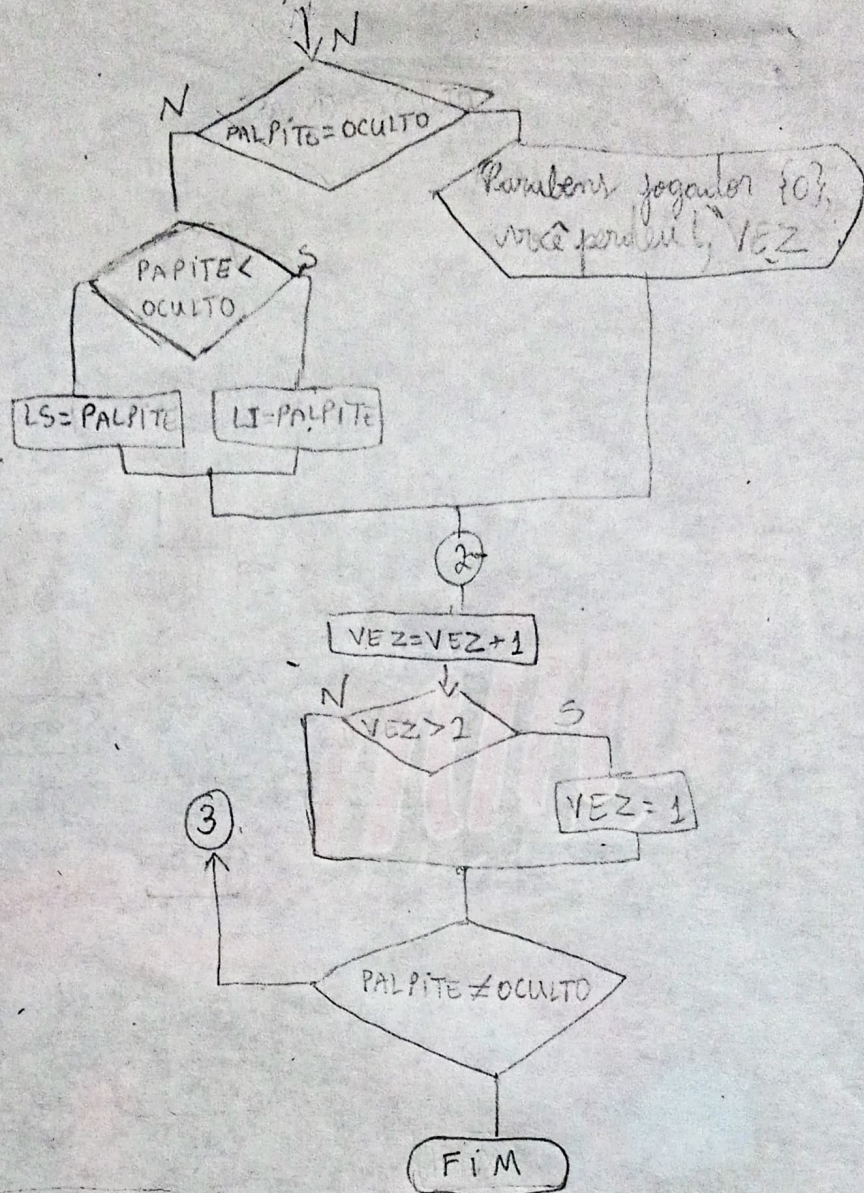 N
N
PALPITE=OCULTO
Parabens jogador {0},
você perdeu!, VEZ
PAPITE<
OCULTO
S
LS=PALPITE
LI=PALPITE
2
VEZ=VEZ+1
N
VEZ>2
S
VEZ=1
3
PALPITE≠OCULTO
FIM